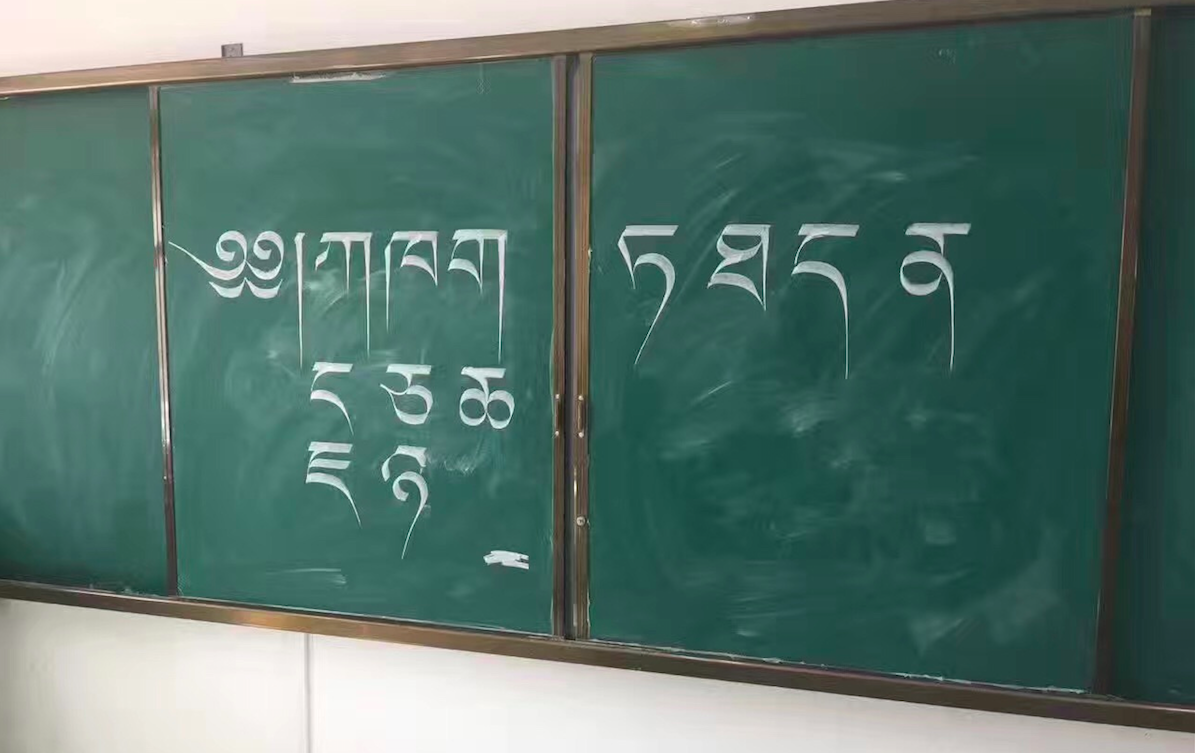 ༄༅།ཀཁག
ང ཅ ཆ
ཇ ཉ
ཏ ཐ ད ན